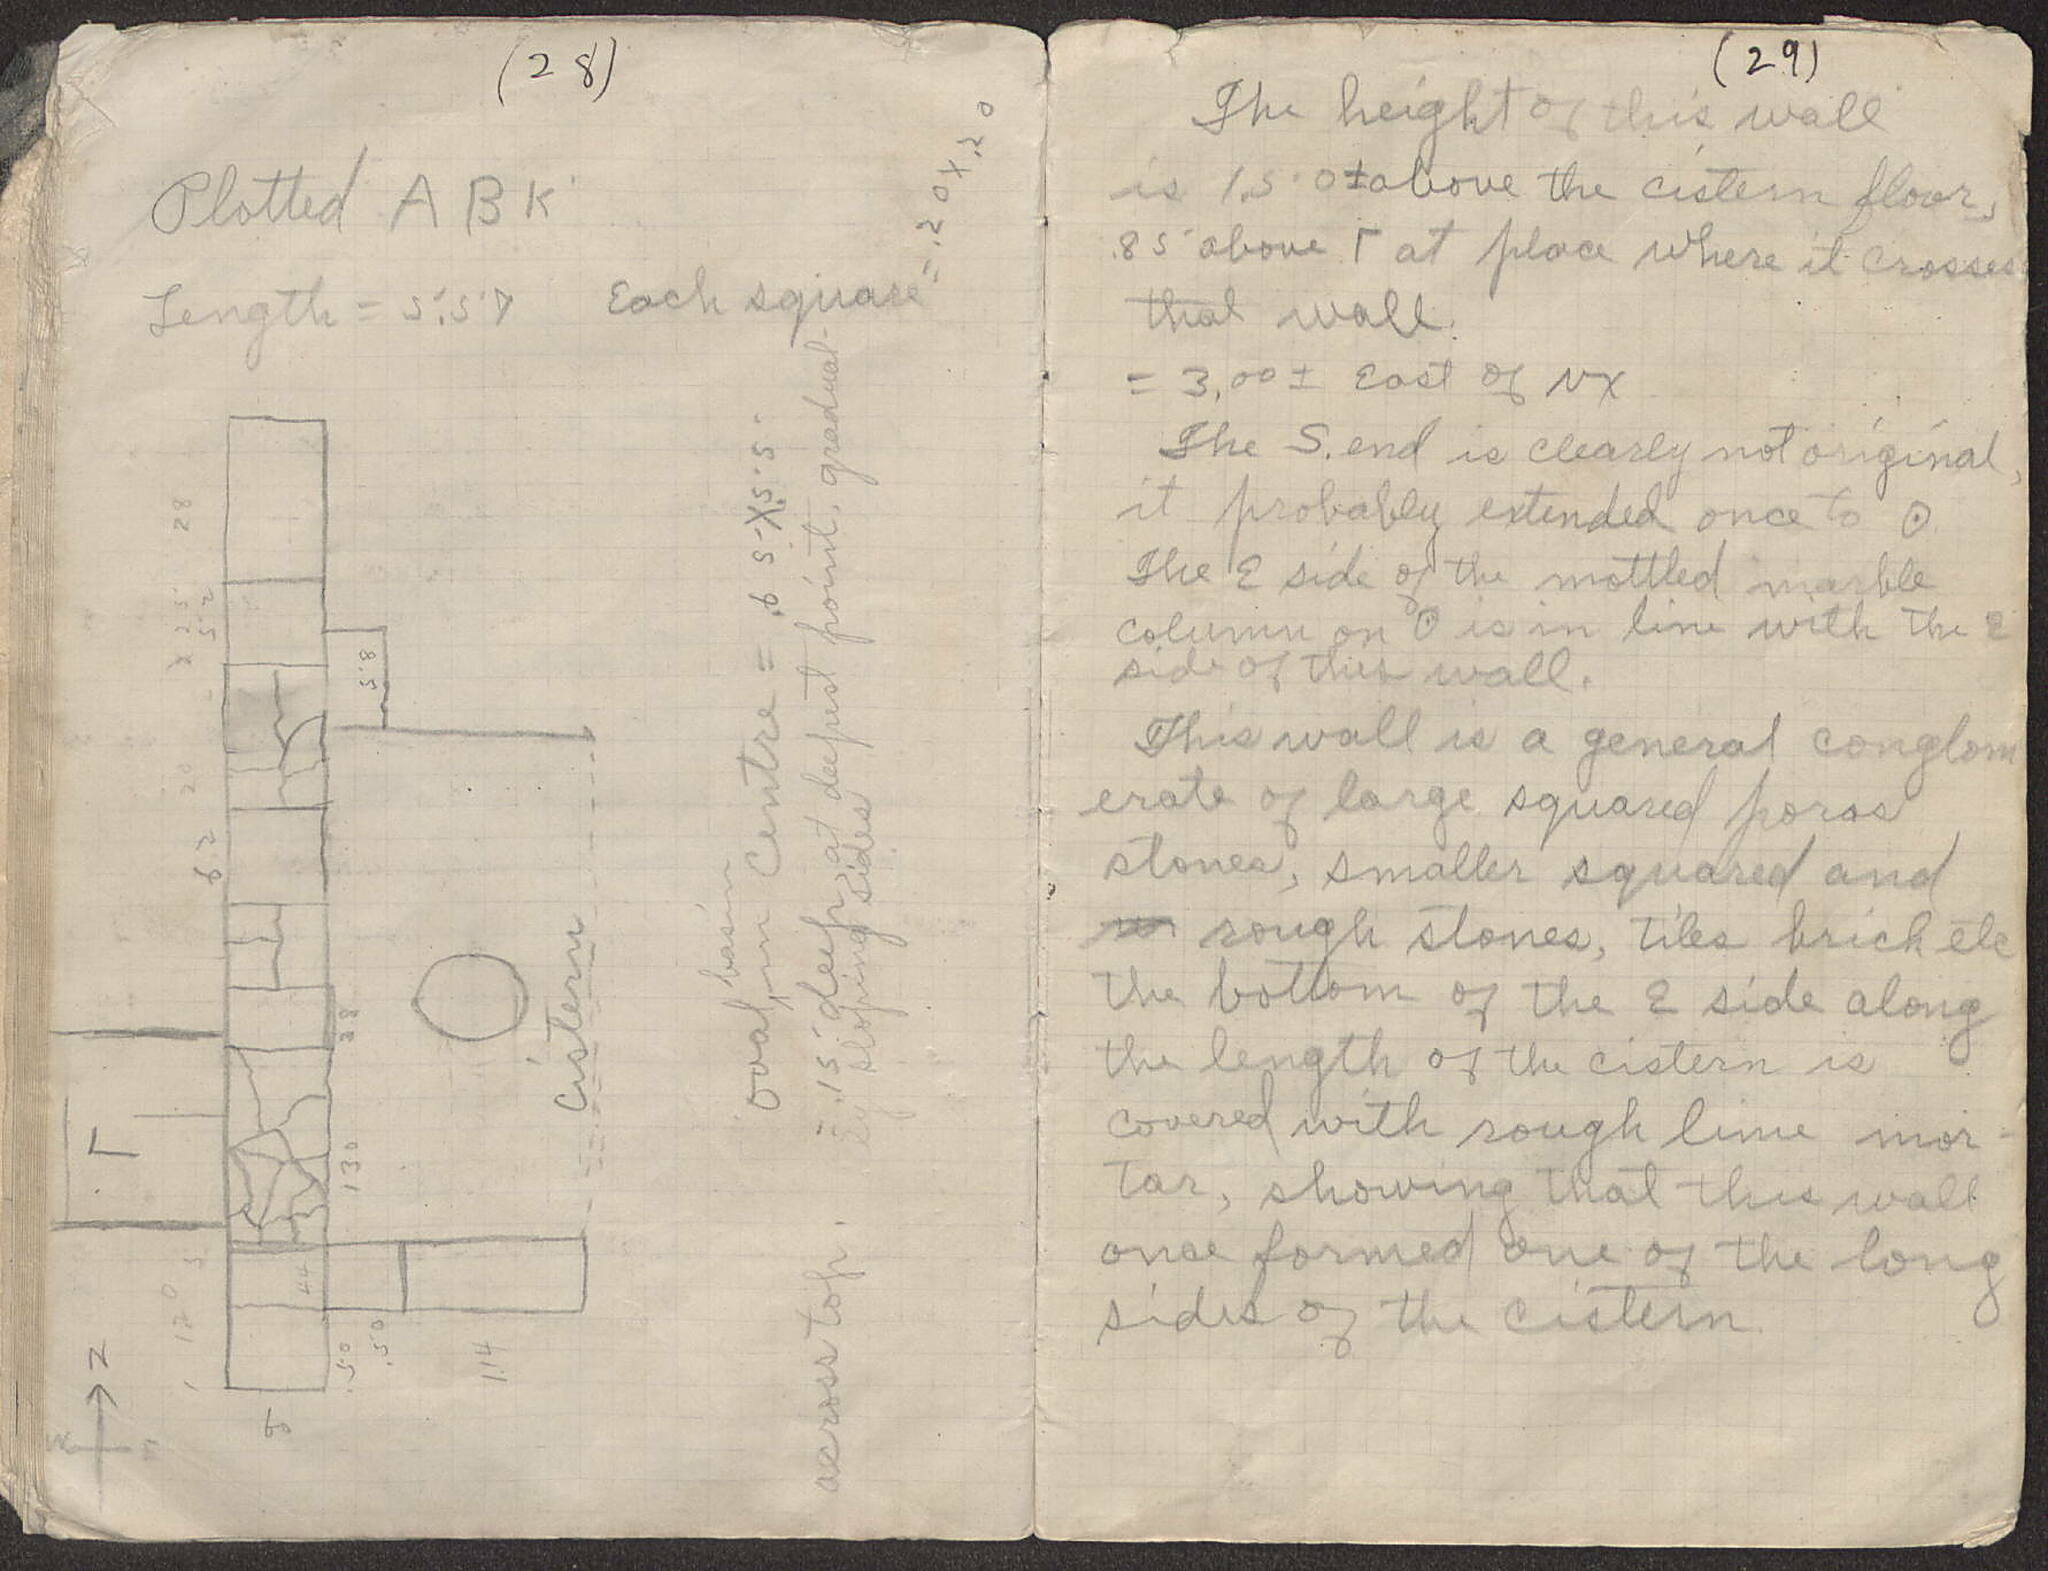 (28)
Plotted A B K
Length = 5.57 Each square = .20 x .20
28
20
62
.58
Γ
88
130
44
120
.50
.50
1.14
N
Cistern
oval basin in centre = .65 x .55
= .15 deep at deepest point, gradual-
ly sloping sides
across top.
(29)
The height of this wall
is 1.50± above the cistern floor,
.85 above Γ at place where it crosses
that wall.
= 3.00± East of NX
The S. end is clearly not original,
it probably extended once to ʘ
The E side of the mottled marble
column on ʘ is in line with the E
side of this wall.
This wall is a general conglom
erate of large squared poros
stones, smaller squared and
rough stones, tiles brick etc
the bottom of the E side along
the length of the cistern is
covered with rough lime mor-
tar, showing that this wall
once formed one of the long
sides of the cistern